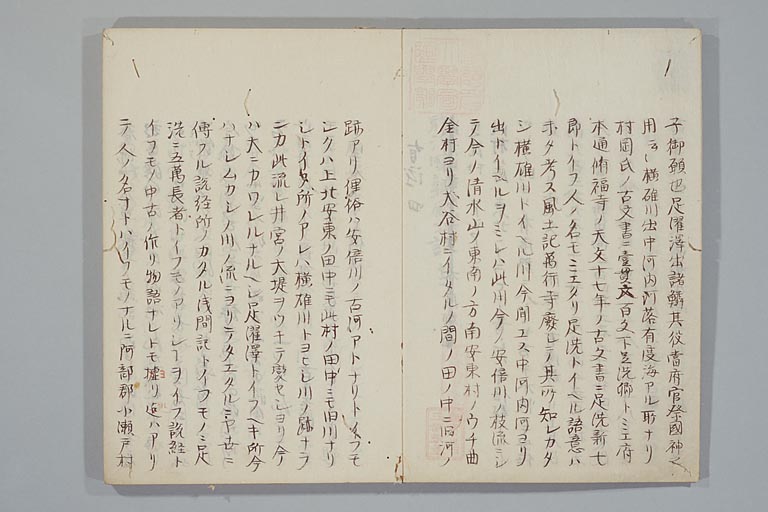 子御願也足濯澤出諸鱗其役當府官祭國神之
用云々横碓川出中河内河落有度海アル形ナリ
村岡氏ノ古文書ニ壹貫文百文下足洗郷トミエ府
本通脩福寺ノ天文十七年ノ古文書ニ足洗新七
郎トイフ人ノ名モミエタリ足洗トイヘル語意ハ
ホタ考ス風土記萬行寺廢レテ其所知レカタ
シ横碓川トイヘル川今聞エス中河内河ヨリ
出トイヘルヲミレハ此川今ノ安倍川ノ枝流ニシ
テ今ノ清水山ノ東南ノ方南安東村ノウチ曲
金村ヨリ大谷村ニイタルノ間ノ田ノ中ニ旧河ノ
跡アリ俚俗ハ安倍川ノ古河アトナリトイフモ
シクハ上北安東ノ田中ニモ此村ノ田中ニモ旧川ナリ
シトイフ所ノアレハ横碓川トヨヒシ川ノ跡ナラ
ンカ此流レ井宮ノ大堤ヲウチテ變セシヨリ今
ハ大ニカワレルナルヘシ足濯澤トイフヘキ所今
ハナシムカシノ川ノ流ニヨリテタエタルニヤ世ニ
傳フル説経所ノカタル浅間記トイフモノニ足
洗ニ五萬長者トイフモノアリシ ヲイフ説経ト
イフモノ中古ノ作リ物語ナレトモ據リ所ハアリ
テ人ノ名ナトハイフモノナルニ阿部郡小瀬戸村